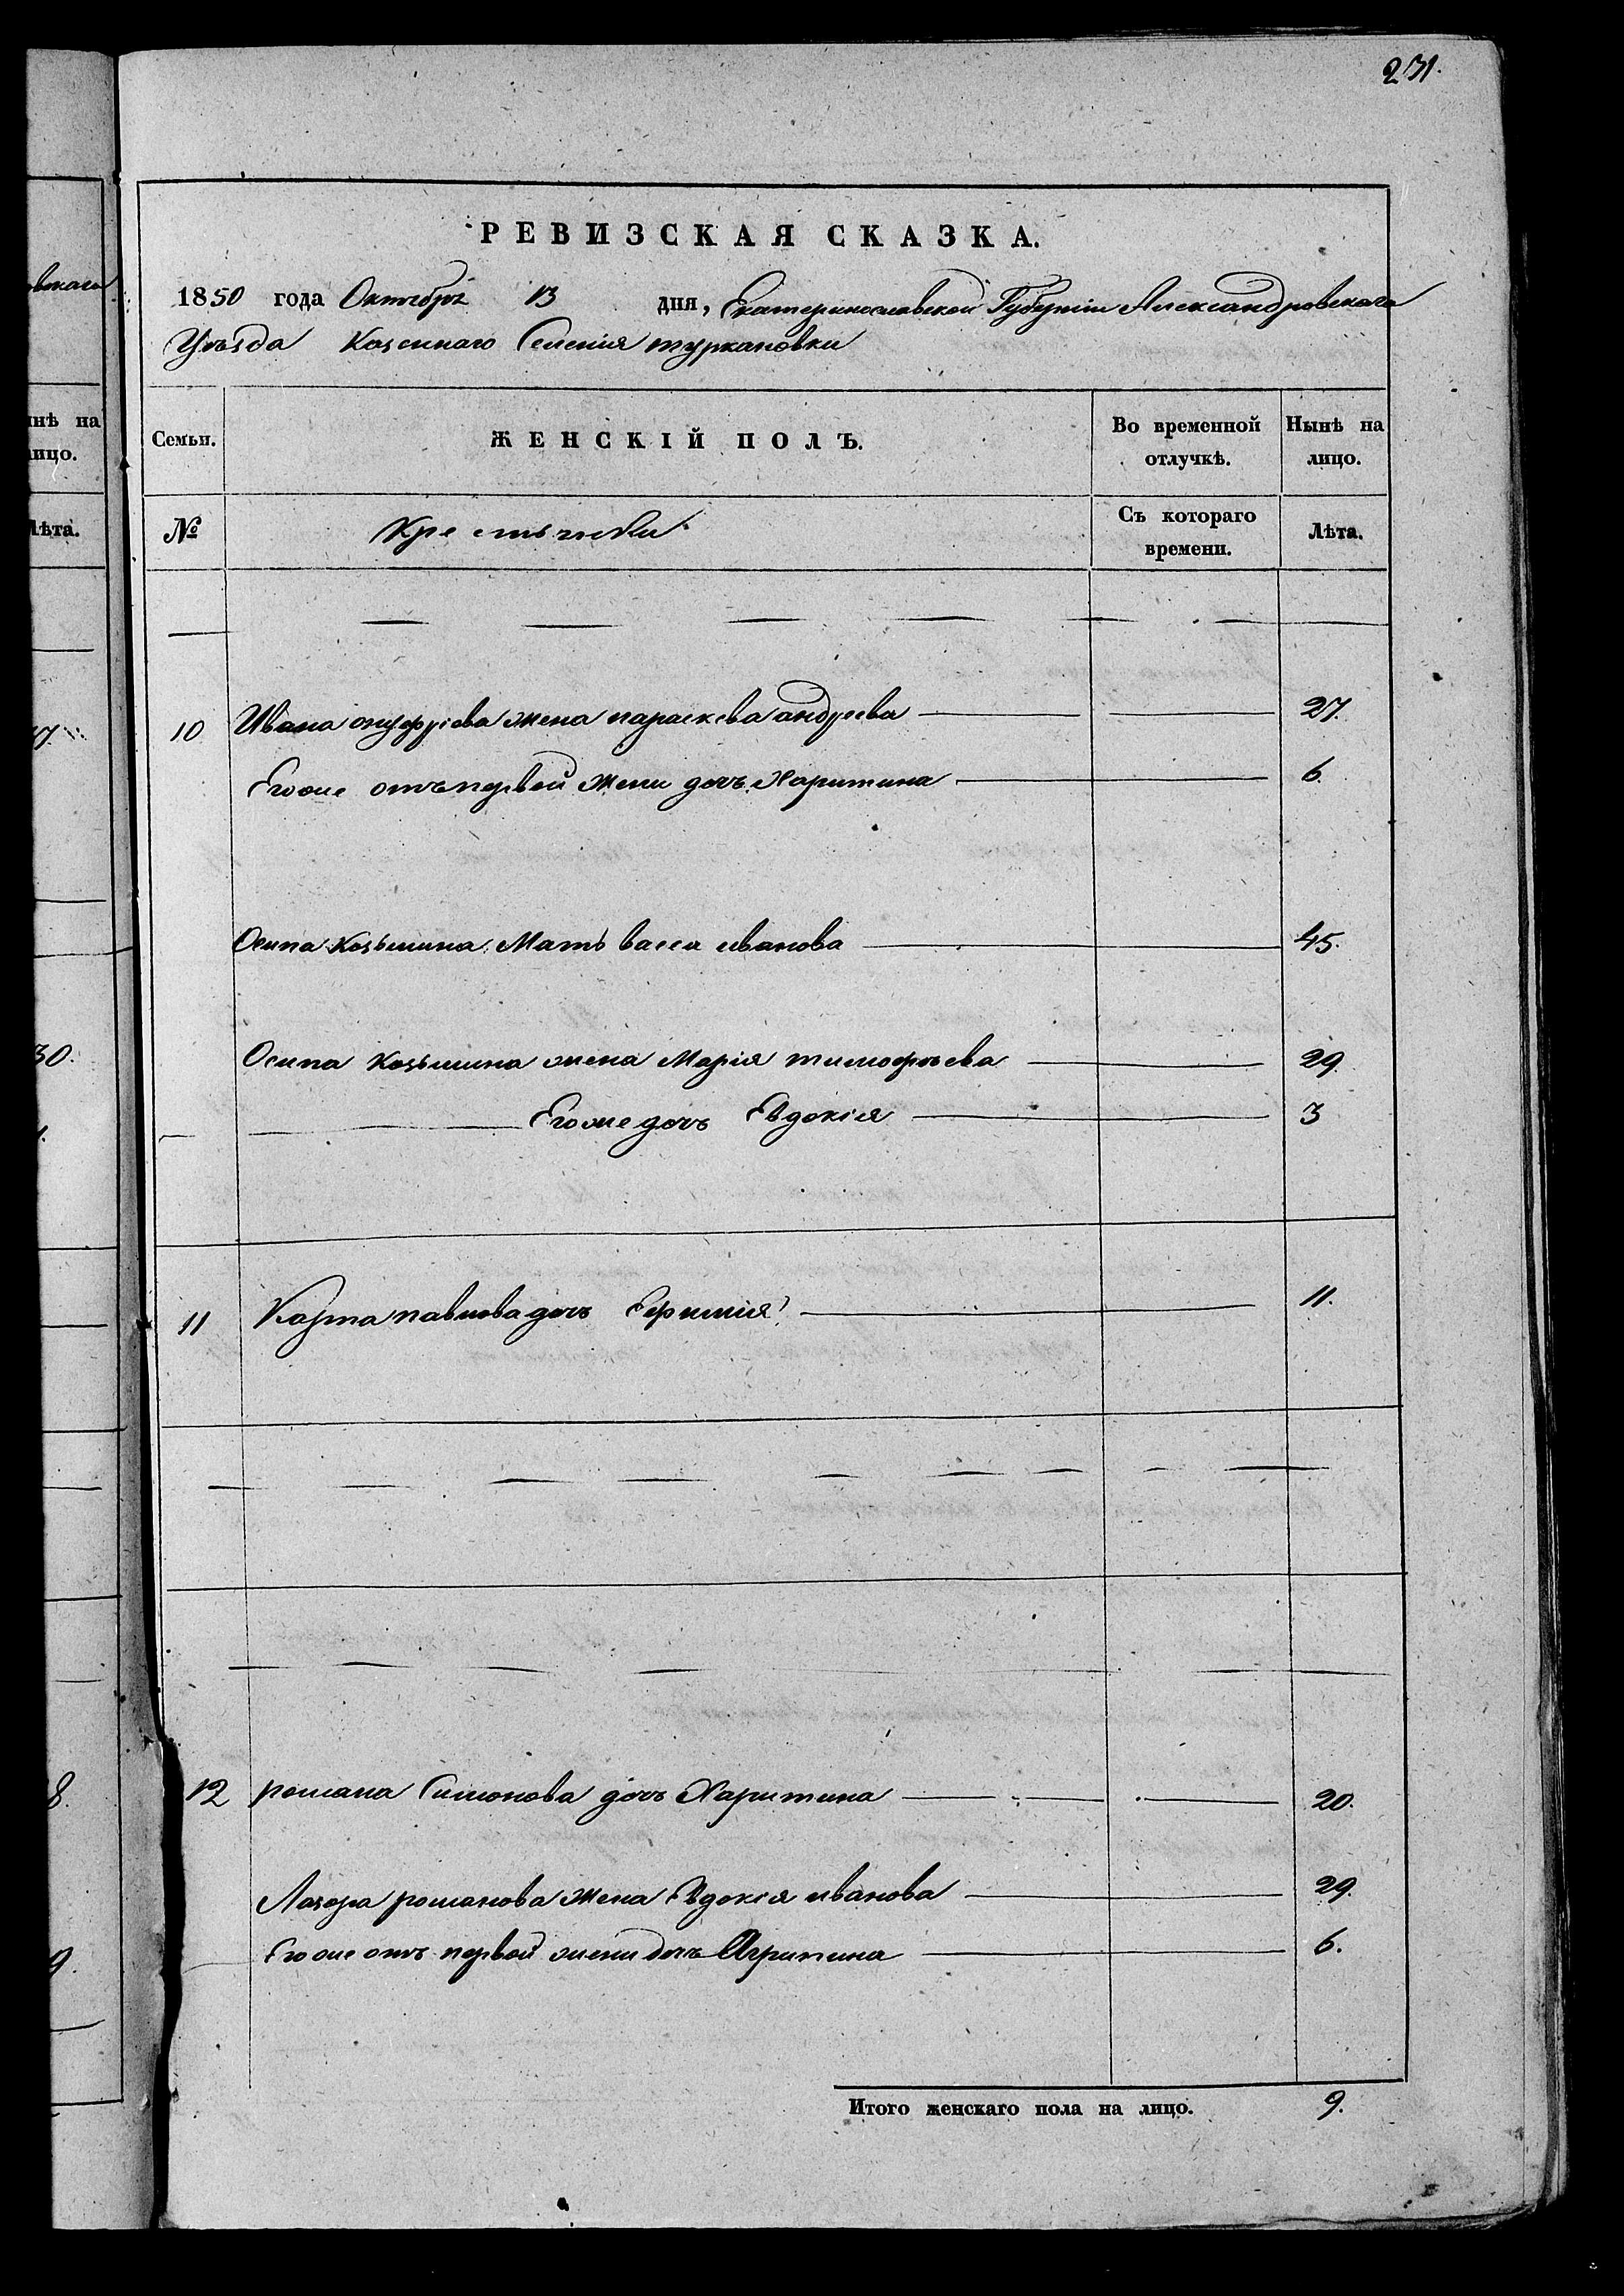 231.
вскаго
РЕВИЗСКАЯ СКАЗКА.
1850 года Октября 13 дня, Екатеринославской Губерніи Александровскаго
Уѣзда Казеннаго Селенія туркановки
нѣ на
ицо.
Семьи. ЖЕНСКІЙ ПОЛЪ. Во временной отлучкѣ. Нынѣ на лицо.
Лѣта.
№ Крестьянки Съ котораго времени. Лѣта.
10 Ивана онуфріева жена параскева андреева 27.
Егоже отъ первой жени дочъ Харитина 6.
Осипа Козьмина Мать васса иванова 45.
30.
Осипа Козьмина жена Марія тимофѣева 29.
Егоже дочъ Евдокія 3
11 Карпа павлова дочъ Ефимія 11.
8.
12 романа Симонова дочъ Харитина 20.
Лазора романова жена Евдокія иванова 29.
9.
Егоже отъ первой жени дочъ Агрипина 6.
Итого женскаго пола на лицо. 9.